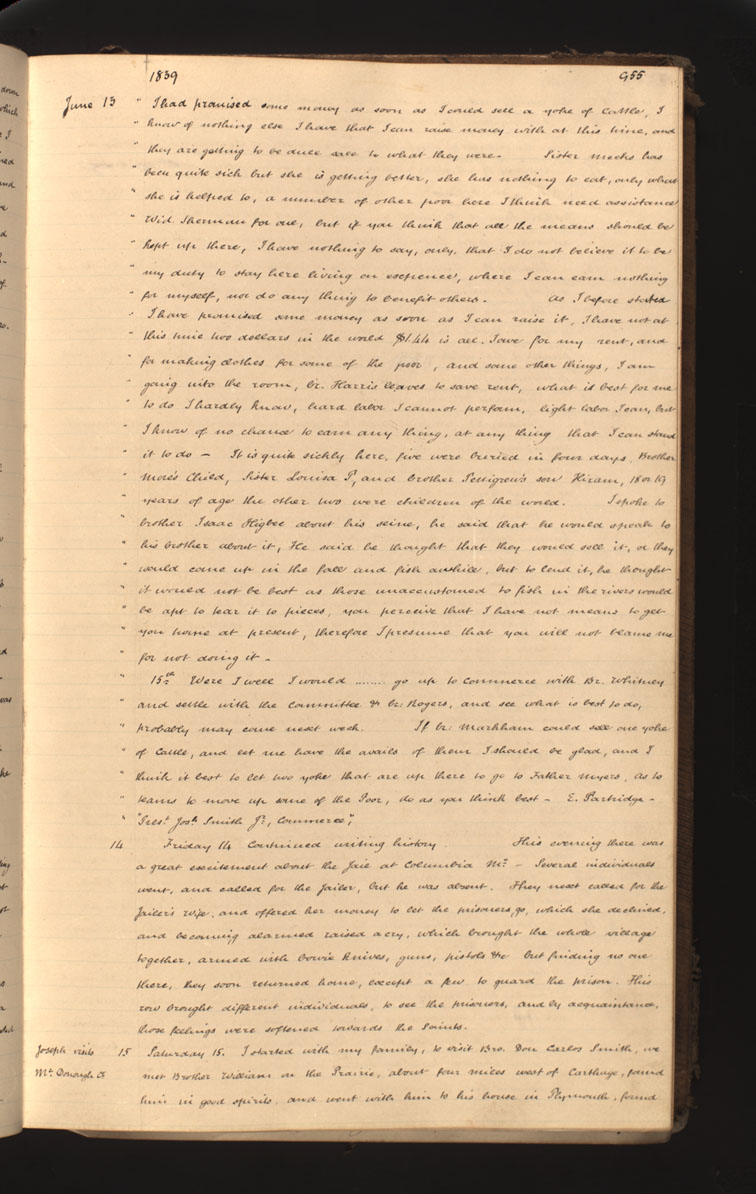 1839 955
June 13 " I had promised some money as soon as I could sell a yoke of Cattle, I
" know of nothing else I have that I can raise money with at this time, and
" they are getting to be dull sale to what they were- Sister Meeks has
" been quite sick but she is getting better, she has nothing to eat, only what
" she is helped to, a number of other poor here I think need assistance
" Wid. Sherman for one, but if you think that all the means should be
" kept up there, I have nothing to say, only, that I do not believe it to be
" my duty to stay here living on expence, where I can earn nothing
" for myself, nor do any thing to benefit others. - As I before stated
" I have promised some money as soon as I can raise it, I have not at
" this time two dollars in the world $1.44 is all. I owe for my rent, and
" for making clothes for some of the poor, and some other things, I am
" going into the room, br. Harris leaves to save rent, what is best for me
" to do I hardly know, hard labor I cannot perform, light labor I can, but
" I know of no chance to earn any thing, at any thing that I can stand
" it to do - It is quite sickly here, five were buried in four days, Brother
" More's Child, Sister Louisa P, and brother Pettigrew's son Hiram, 18 or 19
" years of age the other two were children of the world. I spoke to
" brother Isaac Higbee about his seine, he said that he would speak to
" his brother about it, He said he thought that they would sell it, or they
" would come up in the fall and fish awhile, but to lend it, he thought
" it would not be best as those unaccustomed to fish in the rivers would
" be apt to tear it to pieces, you perceive that I have not means to get
" you home at present, therefore I presume that you will not blame me
" for not doing it -
" 15th Were I well I would ........ go up to Commerce with Br. Whitney
" and settle with the Committee & br. Rogers, and see what is best to do,
" probably may come next week. If br. Markham could sell one yoke
" of Cattle, and let me have the avails of them I should be glad, and I
" think it best to let two yoke that are up there to go to Father Myers, as to
" teams to move up some of the Poor, do as you think best - E. Partridge -
" "Prest. Josh. Smith Jr, Commerce",
14 Friday 14 Continued writing history. This evening there was
a great excitement about the Jail at Columbia Mo. - Several individuals
went, and called for the Jailer, but he was absent. They next called for the
Jailer's wife, and offered her money to let the prisoners go, which she declined,
and becoming alarmed raised a cry, which brought the whole village
together, armed with bowie knives, guns, pistols &c but finding no one
there, they soon returned home, except a few to guard the prison. This
row brought different individuals, to see the prisoners, and by acquaintance,
those feelings were softened towards the Saints.
Joseph visits 15 Saturday 15. I started with my family, to visit Bro. Don Carlos Smith, we
Mc. Donough Co met Brother William on the Prairie, about four miles west of Carthage, found
him in good spirits, and went with him to his house in Plymouth, found